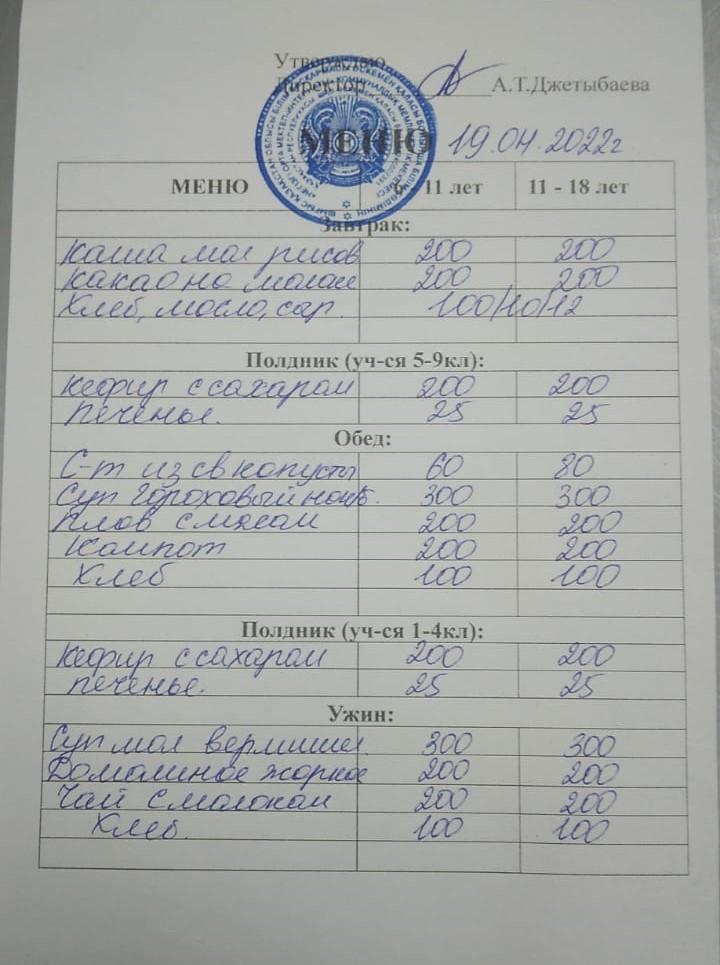 Утверждаю
Директор А.Т.Джетыбаева
МЕНЮ 19.04.2022г
МЕНЮ 6 - 11 лет 11 - 18 лет
Завтрак:
Каша мол рисов 200 200
Какао на молок 200 200
Хлеб, масло, сыр. 100/10/12
Полдник (уч-ся 5-9кл):
Кефир с сахаром 200 200
печенье. 25 25
Обед:
С-т из св капусты 60 80
Суп гороховый на к/б. 300 300
Плов с мясом 200 200
Компот 200 200
Хлеб 100 100
Полдник (уч-ся 1-4кл):
Кефир с сахаром 200 200
печенье. 25 25
Ужин:
Суп мол вермишел 300 300
Домашнее жаркое 200 200
Чай с молоком 200 200
Хлеб. 100 100